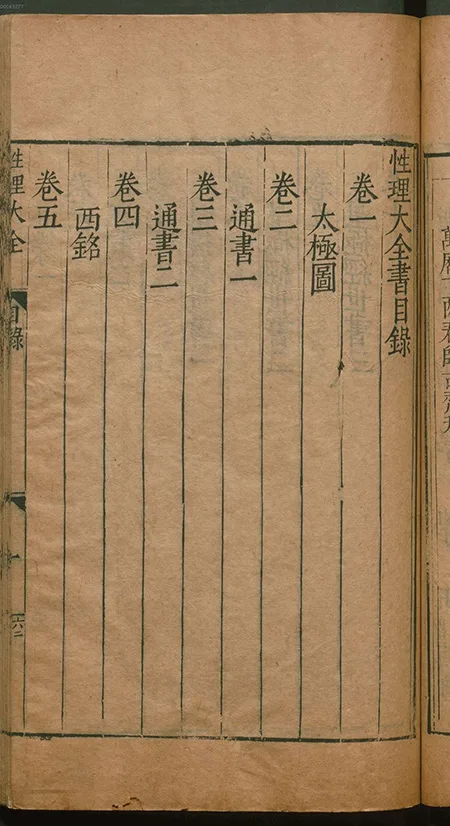 性理大全書目錄
卷一
太極圖
卷二
通書一
卷三
通書二
卷四
西銘
卷五
性理大全
目錄
一
六二